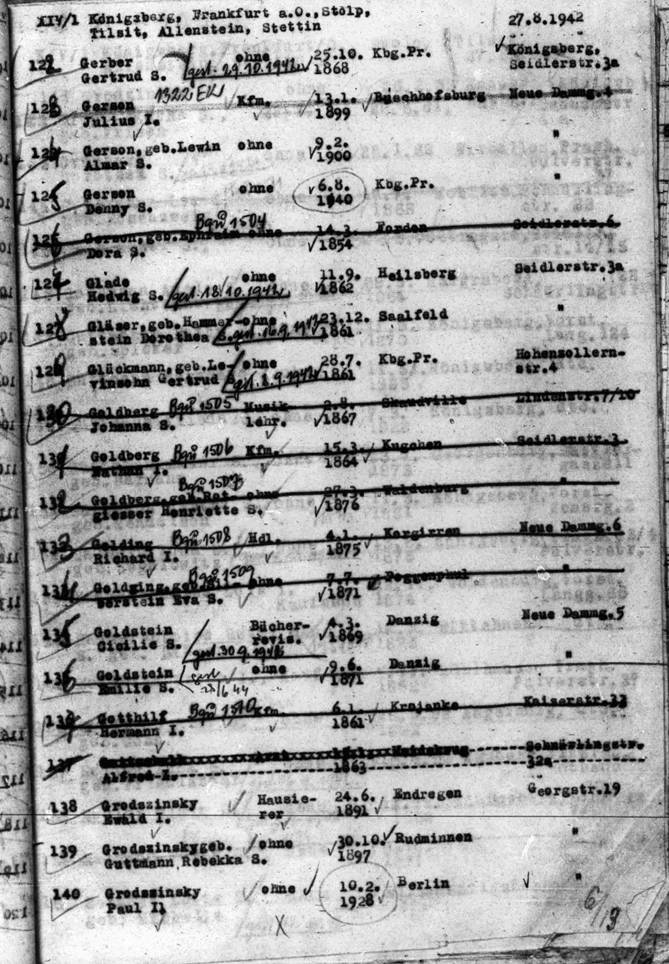 XIV/1 Königsberg, Frankfurt a.O., Stölp, 27.8.1942
Tilsit, Allenstein, Stettin
122 Gerber ohne 25.10. Kbg.Pr. Königsberg,
Gertrud S. gest. 29.10.1942 1868 Seidlerstr.3a
123 Gerson 1322 Kfm. 13.1. Bischhofsburg Neue Dammg.4
Julius I. 1899
124 Gerson,geb.Lewin ohne 9.2. "
Almar S. 1900
125 Gerson ohne 6.8. Kbg.Pr. "
Denny S. 1940
126 Gerson,geb.Ephraim ohne Bgü 1504 14.3. Norden Seidlerstr.6
Dora S. 1854
127 Glade ohne 11.9. Heilsberg Seidlerstr.3a
Hedwig S. gest. 18/10.1942 1862
128 Gläser,geb.Hammer- ohne 23.12. Saalfeld "
stein Dorothea S. gest. 16.9.1942 1861
129 Glückmann,geb.Le- ohne 28.7. Kbg.Pr. Hohenzollern-
vinsohn Gertrud gest. 2.9.1942 1861 str.4
130 Goldberg Bgü 1505 Musik 2.8. Skaudville Lindenstr.7/10
Johanna S. lehr. 1867
131 Goldberg Bgü 1506 Kfm. 15.3. Kugohen Seidlerstr.3
Nathan I. 1864
132 Goldberg,geb.Rot- Bgü 1507 ohne 27.3. Waldenburg "
giesser Henriette S. 1876
133 Golding Bgü 1508 Hdl. 4.1. Kergirren Neue Dammg.6
Richard I. 1875
134 Golding,geb. Bgü 1509 ohne 7.7. Poggenphul "
berstein Eva S. 1871
135 Goldstein Bücher- 4.3. Danzig Neue Dammg.5
Cicilie S. gest. 30.9.1942 revis. 1869
136 Goldstein gest. ohne 9.6. Danzig "
Emilie S. 27/6 44 1871
137 Gotthilf Bgü 1510 Kfm. 6.1. Krojanke Kaiserstr.33
Hermann I. 1861
137 Arzt Schnürlingstr.
Alfred I. 1863 32a
138 Grodszinsky Hausie- 24.6. Endregen Georgstr.19
Ewald I. rer 1891
139 Grodszinskygeb. ohne 30.10. Rudminnen "
Guttmann,Rebekka S. 1897
140 Grodszinsky ohne 10.2. Berlin "
Paul I. 1928
X